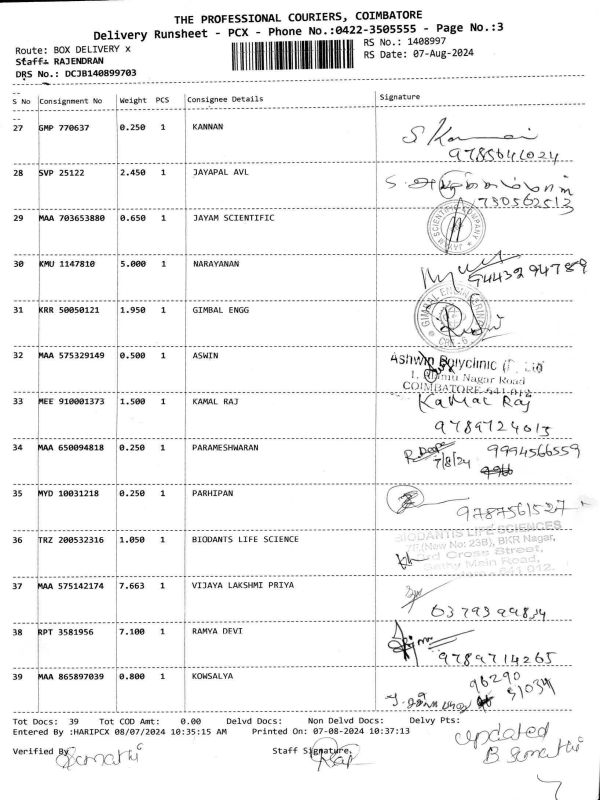 THE PROFESSIONAL COURIERS, COIMBATORE
Delivery Runsheet - PCX - Phone No.:0422-3505555 - Page No.:3
Route: BOX DELIVERY x RS No.: 1408997
Staff: RAJENDRAN RS Date: 07-Aug-2024
DRS No.: DCJB140899703
S No Consignment No Weight PCS Consignee Details Signature
27 GMP 770637 0.250 1 KANNAN
9785641024
28 SVP 25122 2.450 1 JAYAPAL AVL
730562513
29 MAA 703653880 0.650 1 JAYAM SCIENTIFIC
30 KMU 1147810 5.000 1 NARAYANAN
9443294789
31 KRR 50050121 1.950 1 GIMBAL ENGG
32 MAA 575329149 0.500 1 ASWIN
Ashwin Polyclinic (P) Ltd
Nagar Road
COIMBATORE-641 012
33 MEE 910001373 1.500 1 KAMAL RAJ
Kamal Raj
9789724013
34 MAA 650094818 0.250 1 PARAMESHWARAN
9994566559
7/8/24
35 MYD 10031218 0.250 1 PARHIPAN
9787561527
36 TRZ 200532316 1.050 1 BIODANTS LIFE SCIENCE
BIODANTIS LIFE SCIENCES
(New No: 23B), BKR Nagar,
Cross Street,
Sathy Main Road,
641 012.
37 MAA 575142174 7.663 1 VIJAYA LAKSHMI PRIYA
38 RPT 3581956 7.100 1 RAMYA DEVI
9789714265
39 MAA 865897039 0.800 1 KOWSALYA
96290
51034
Tot Docs: 39 Tot COD Amt: 0.00 Delvd Docs: Non Delvd Docs: Delvy Pts:
Entered By :HARIPCX 08/07/2024 10:35:15 AM Printed On: 07-08-2024 10:37:13
Verified By Staff Signature.
updated
B Sumathi